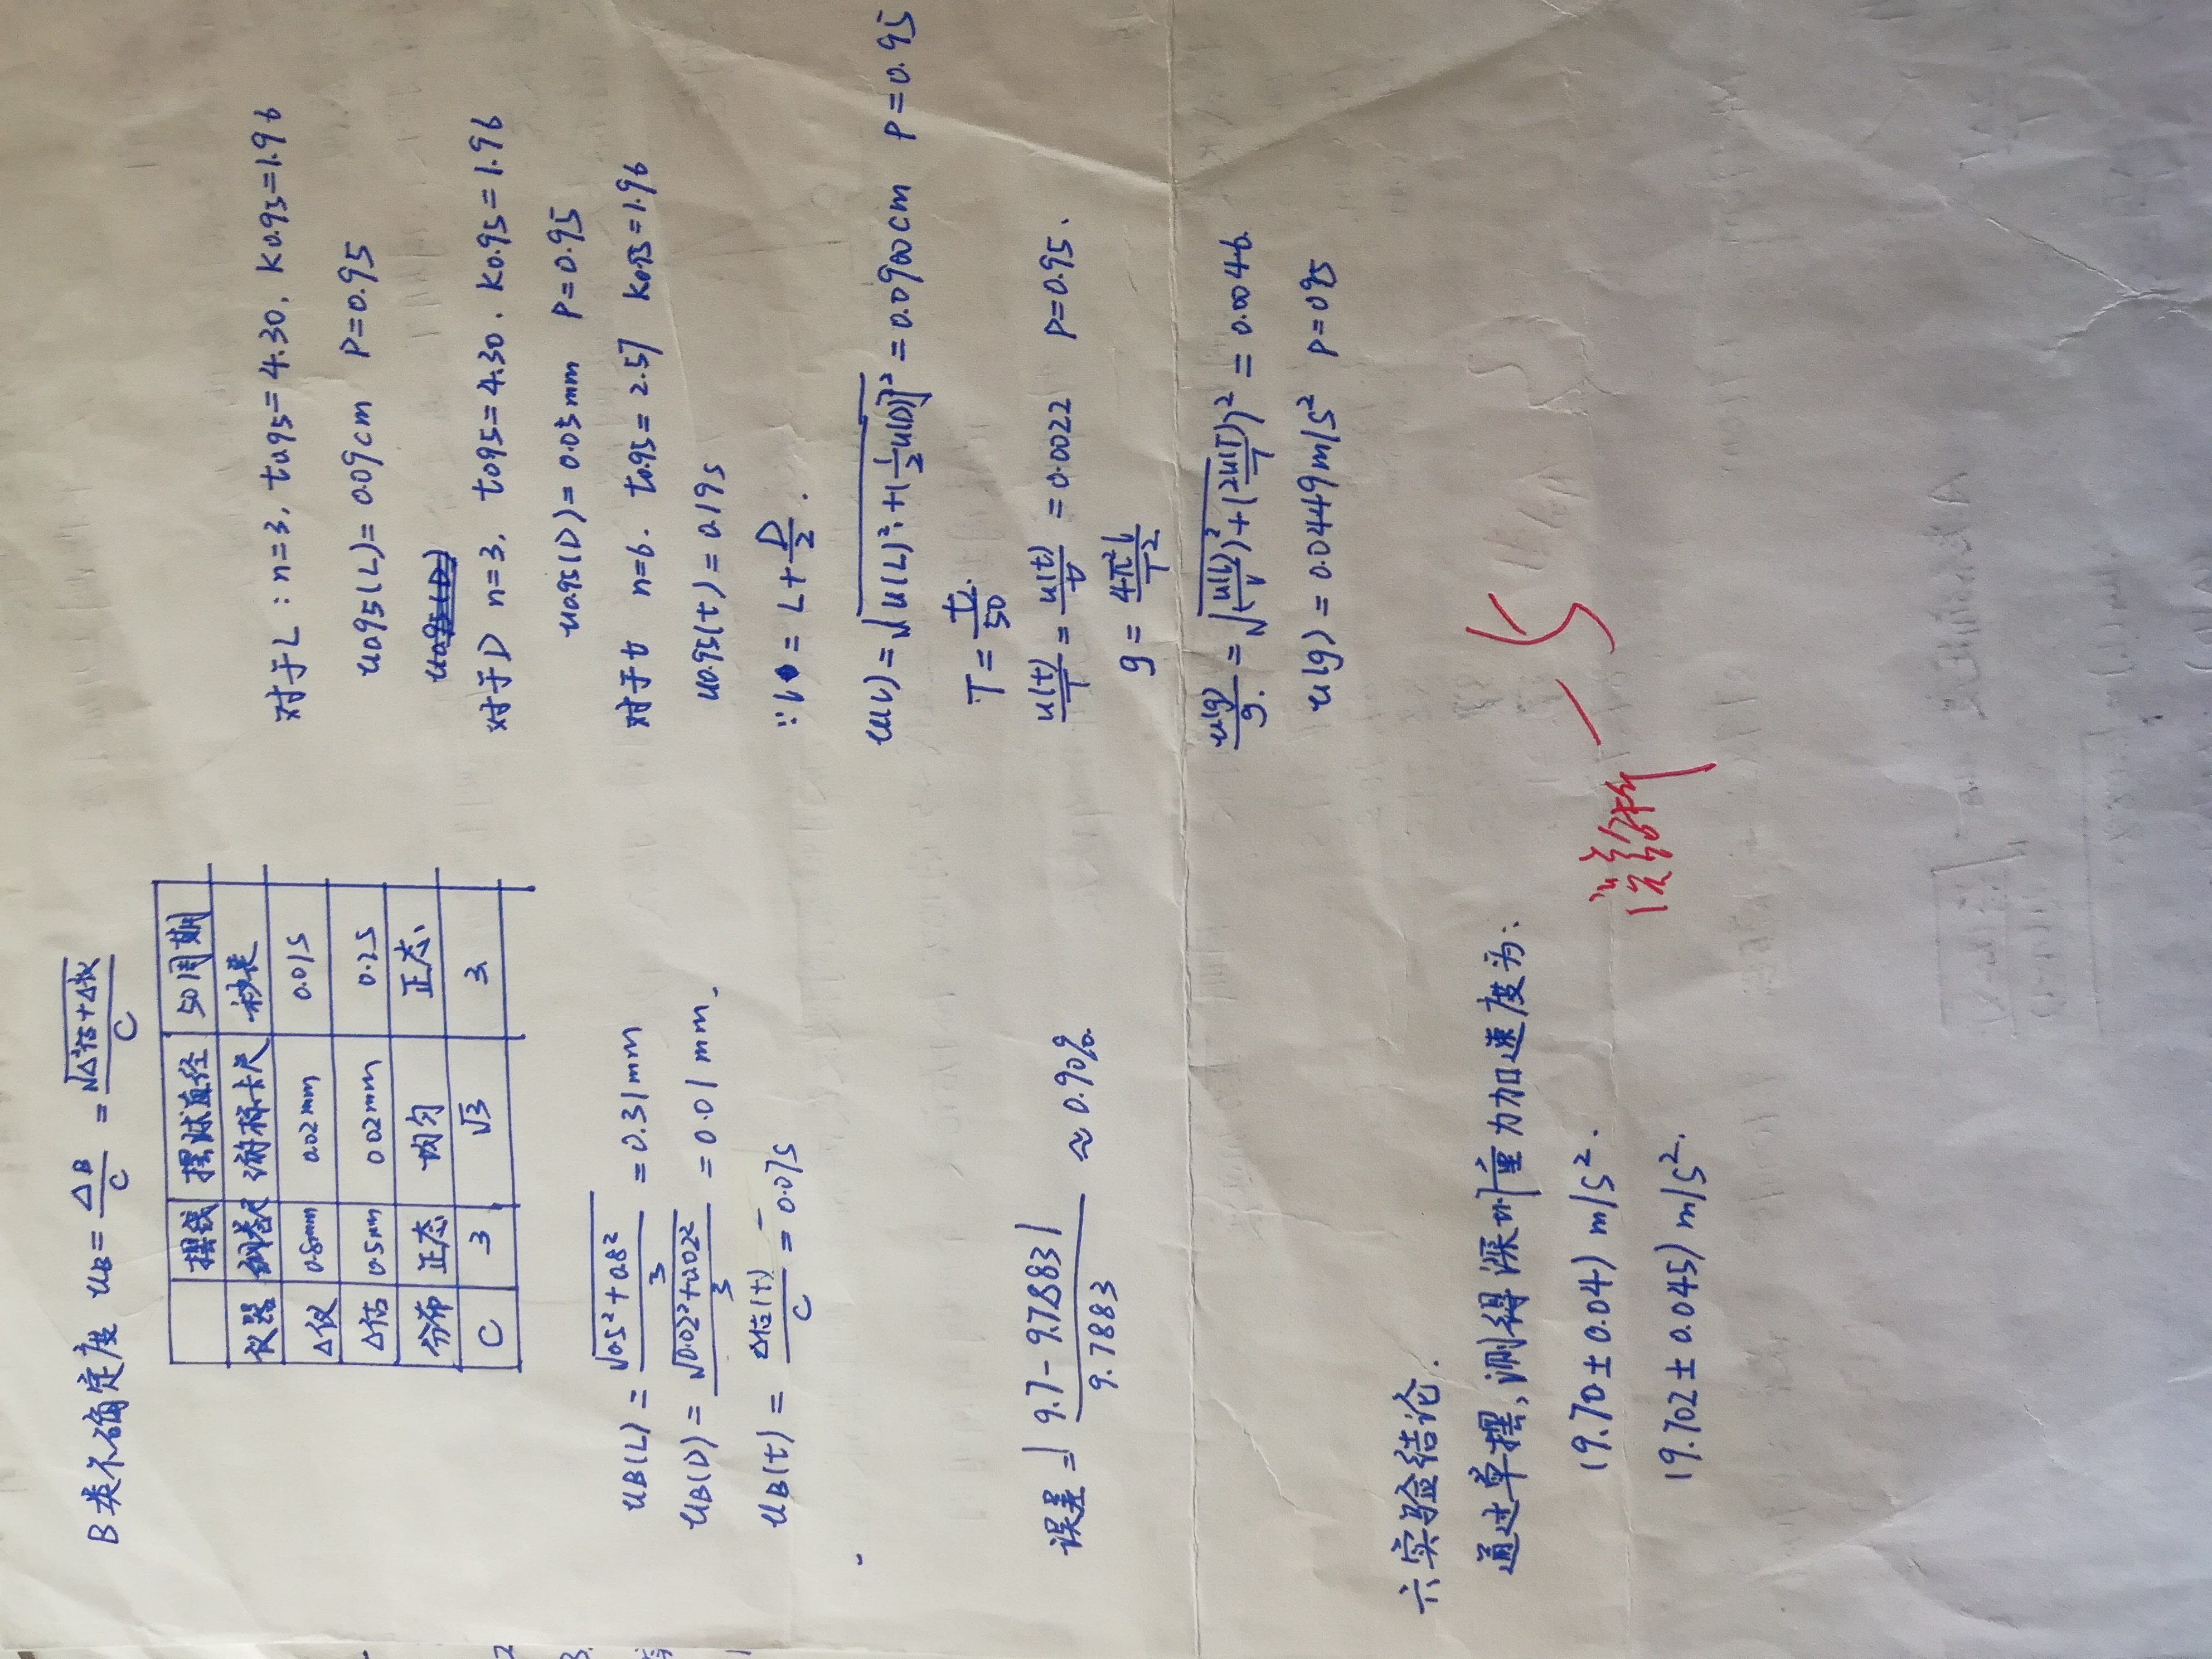 B类不确定度 uB = ΔB/C = √(Δ²估+Δ仪)/C
摆线 摆球直径 50周期
仪器 钢卷尺 游标卡尺 秒表
Δ仪 0.8mm 0.02mm 0.01s
Δ估 0.5mm 0.02mm 0.2s
分布 正态 均匀 正态
C 3 √3 3
uB(L) = √(0.5²+0.8²)/3 = 0.31mm
uB(D) = √(0.02²+0.02²)/3 = 0.01mm.
uB(t) = Δ估(t)/C = 0.07s
误差 = |9.7-9.7883|/9.7883 ≈ 0.90%
对于L : n=3. t0.95=4.30. K0.95=1.96
u0.95(L) = 0.09cm P=0.95
对于D n=3. t0.95=4.30. K0.95=1.96
u0.95(D) = 0.05mm P=0.95
对于t n=6. t0.95=2.57 K0.95=1.96
u0.95(t) = 0.19s
∵ l = L+D/2.
u(l) = √(u(L)²+[½u(D)]²) = 0.0900cm P=0.95
T = t/50
u(t)/T = u(t)/t = 0.0022 P=0.95.
g = 4π²l/T²
u(g)/g. = √((u(l)/l)²+(2u(T)/T)²) = 0.0046
u(g) = 0.0449m/s² P=095
六实验结论.
通过单摆,测得深圳重力加速度为:
(9.70±0.04) m/s².
(9.702±0.045) m/s².
-5